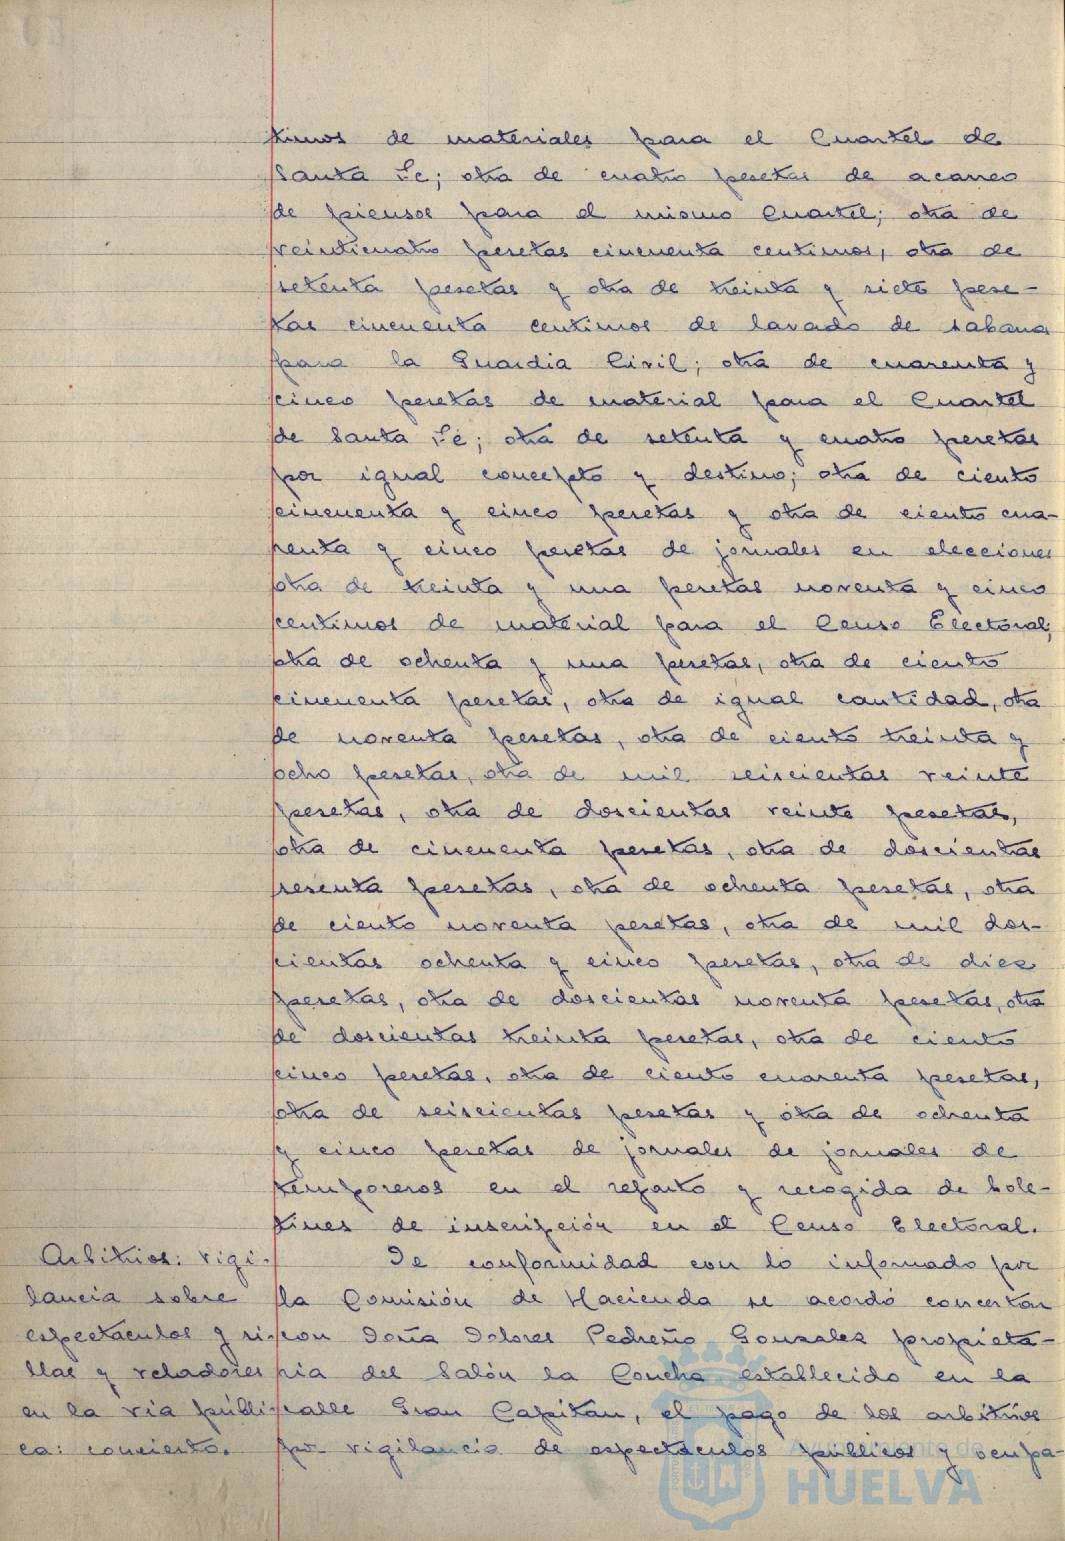 timos de materiales para el Cuartel de
Santa Fe; otra de cuatro pesetas de acarreo
de piensos para el mismo Cuartel; otra de
veinticuatro pesetas cincuenta centimos, otra de
setenta pesetas y otra de treinta y siete pese-
tas cincuenta centimos de lavado de sabanas
para la Guardia Civil; otra de cuarenta y
cinco pesetas de material para el Cuartel
de Santa Fé; otra de setenta y cuatro pesetas
por igual concepto y destino; otra de ciento
cincuenta y cinco pesetas y otra de ciento cua-
renta y cinco pesetas de jornales en elecciones
otra de treinta y una pesetas noventa y cinco
centimos de material para el Censo Electoral;
otra de ochenta y una pesetas, otra de ciento
cincuenta pesetas, otra de igual cantidad, otra
de noventa pesetas, otra de ciento treinta y
ocho pesetas, otra de mil seiscientas veinte
pesetas, otra de doscientas veinte pesetas,
otra de cincuenta pesetas, otra de doscientas
sesenta pesetas, otra de ochenta pesetas, otra
de ciento noventa pesetas, otra de mil dos-
cientas ochenta y cinco pesetas, otra de diez
pesetas, otra de doscientas noventa pesetas, otra
de doscientas treinta pesetas, otra de ciento
cinco pesetas, otra de ciento cuarenta pesetas,
otra de seiscientas pesetas y otra de ochenta
y cinco pesetas de jornales de jornales de
temporeros en el reparto y recogida de bole-
tines de inscripción en el Censo Electoral.
Arbitrios: vigi-
lancia sobre
espectaculos y si-
llas y veladores
en la via públi-
ca: concierto.
De conformidad con lo informado por
la Comisión de Hacienda se acordó concertar
con Doña Dolores Pedreño Gonzalez propieta-
ria del Salón la Concha establecido en la
calle Gran Capitan, el pago de los arbitrios
por vigilancia de espectaculos publicos y ocupa-
Ayuntamiento de
HUELVA